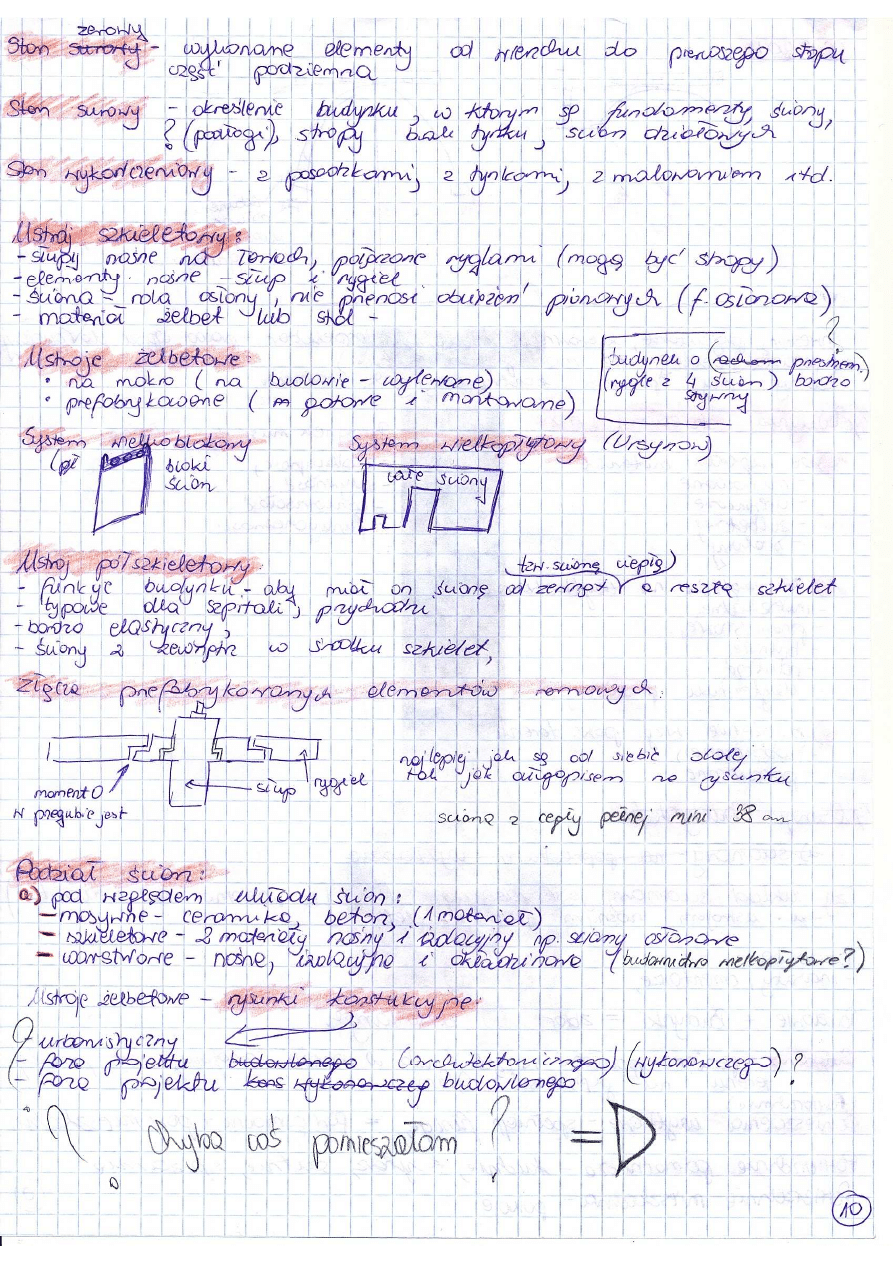 zerowy
Stan surowy - wykonane elementy od wierzchu do pierwszego stropu
część podziemna
Stan surowy - określenie budynku, w którym są fundamenty, ściany,
? (podłogi), stropy bez tynku, ścian działowych
Stan wykończeniowy - z posadzkami, z tynkami, z malowaniem itd.
Ustrój szkieletowy:
- słupy nośne na ławach, połączone ryglami (mogą być stropy)
- elementy nośne - słup i rygiel
- ściana = rola osłony, nie przenosi obciążeń pionowych (f. osłonowa)
- materiał żelbet lub stal -
Ustroje żelbetowe:
• na mokro (na budowie - wylewane)
• prefabrykowane (gotowe i montowane)
?
budynek o (przestrzen.)
(rygle z 4 ścian) bardzo
sztywny
System wielkoblokowy
(pł
bloki
ścian
System wielkopłytowy (Ursynów)
całe ściany
Ustrój półszkieletowy:
tzw. ścianę ciepłą)
- funkcje budynku - aby miał on ścianę od zewnątrz a resztę szkielet
- typowe dla szpitali, przychodni
- bardzo elastyczny,
- ściany z zewnątrz w środku szkielet,
Złącza prefabrykowanych elementów ramowych:
moment 0
w przegubie jest
słup
rygiel
najlepiej jak są od siebie dalej
tak jak długopisem na rysunku
ściana z cegły pełnej mini 38 cm
Podział ścian:
a) pod względem układu ścian:
- masywne - ceramika, beton, (1 materiał)
- szkieletowe - 2 materiały nośny i izolacyjny np. ściany osłonowe
- warstwowe - nośne, izolacyjne i okładzinowe (budownictwo wielkopłytowe?)
Ustroje żelbetowe - rysunki konstukcyjne:
? - urbanistyczny
- faza projektu budowlanego (architektonicznego) (wykonawczego) ?
- faza projektu kons wykonawczeg budowlanego
? chyba coś pomieszałam ? =D
10